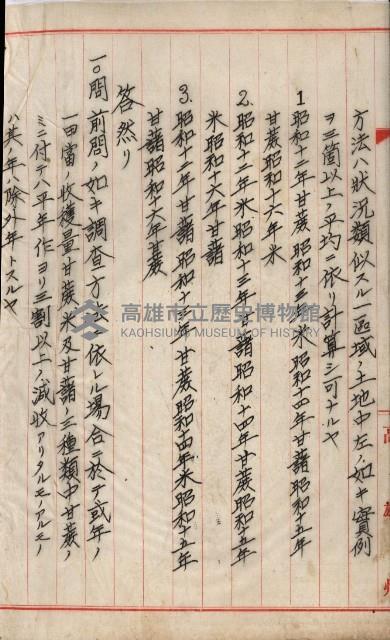 方法ハ狀況類似スル一區域ノ土地中左ノ如キ實例
ヲ三箇以上ノ平均ニ依リ計算シ可ナルヤ
1 昭和十二年甘蔗昭和十三年米昭和十四年甘藷昭和十五年
甘蔗昭和十六年米
2. 昭和十二年米昭和十三年甘藷昭和十四年甘蔗昭和十五年
米昭和十六年甘藷
3. 昭和十二年甘藷昭和十三年甘蔗昭和十四年米昭和十五年
甘藷昭和十六年甘蔗
答 然リ
一〇問 前問ノ如キ調査方法ニ依レル場合ニ於テ或年ノ
一甲當ノ收穫量甘蔗米及甘藷ノ三種類中甘蔗ノ
ミニ付テハ平年作ヨリ三割以上ノ減收アリタルモノアルモノ
ハ其ノ年ハ除外年トスルヤ
高雄州
高雄市立歷史博物館
KAOHSIUNG MUSEUM OF HISTORY